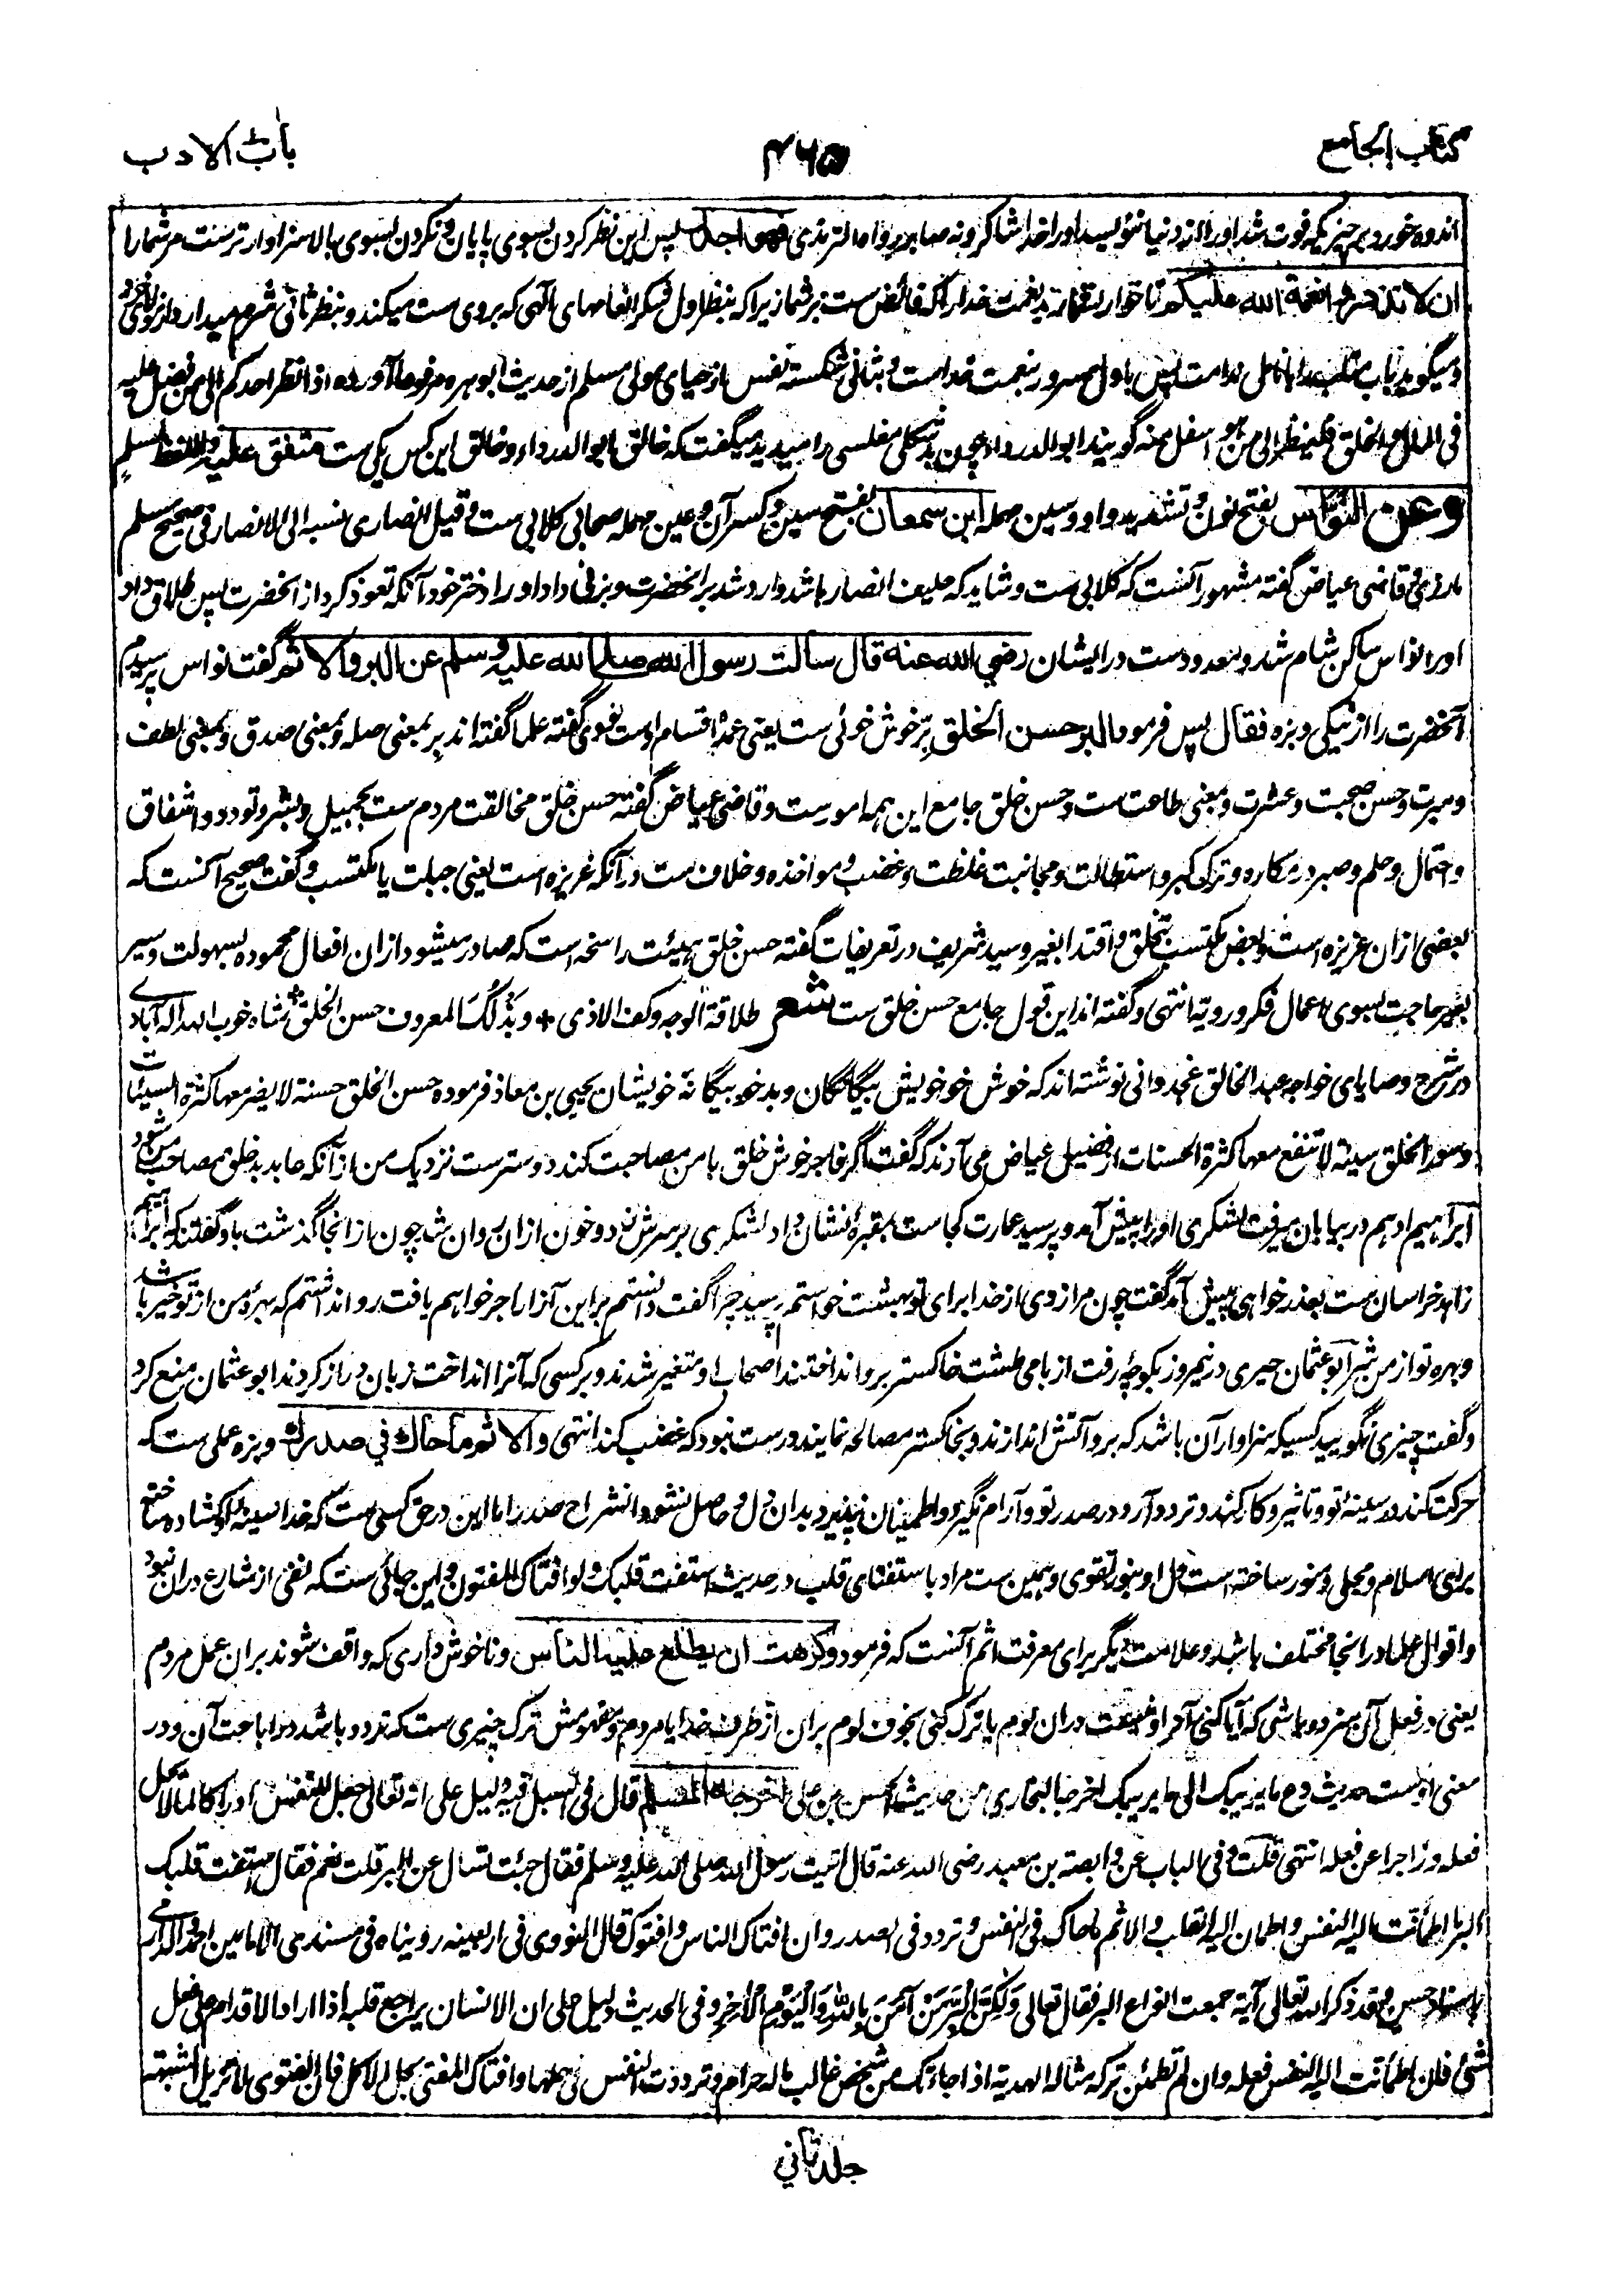 کتاب الجامع
۴۶۵
باب الادب
اندوه خورد بر چیزیکه فوت شد او را از دنیا ننویسد او را خدا شاکر و نه صابر رواه الترمذی فهو اجدر پس این نظر کردن بسوی پایان و نکردن بسوی بالا سزاوارترست مر شما را
ان لا تزدروا نعمة الله علیکم تا خوار نشمارید نعمت خدا را که فائض ست بر شما زیرا که بنظر اول شکر انعامهای الهی که بر وی ست میکند و بنظر ثانی شرم میدارد از
و میگوید پس باول مسرور بنعمت خداست و بثانی شکسته نفس از حیای مولی مسلم از حدیث ابو هریره مرفوعا آورده اذا نظر احدکم الی من فضل علیه
فی المال و الخلق فلینظر الی من هو اسفل منه گویند ابو الدرداء چون بدشکلی مفلسی را میدید میگفت که خالق ابو الدرداء و خالق این کس یکی ست متفق علیه و اللفظ لمسلم
وعن النواس بفتح نون و تشدید واو و سین مهمله ابن سمعان بفتح سین و کسر آن و عین مهمله صحابی کلابی ست و قیل انصاری نسبه الی الانصار فی صحیح مسلم
مازری و قاضی عیاض گفته مشهور آنست که کلابی ست و شاید که حلیف انصار باشد وارد شد بر انحضرت و بزنی داد او را دختر خود آنکه تعوذ کرد از انحضرت پس طلاق داد
او را نواس ساکن شام شد و معدودست در ایشان رضی الله عنه قال سالت رسول الله صلی الله علیه وسلم عن البر والاثم گفت نواس پرسیدم
آنحضرت را از نیکی و بزه فقال پس فرمود البر حسن الخلق برّ خوش خوئی ست یعنی عمدهٔ اقسام اوست نووی گفته علما گفته اند بر بمعنی صله و بمعنی صدق و بمعنی لطف
و مبرت و حسن صحبت و عشرت و بمعنی طاعت ست و حسن خلق جامع این همه امورست و قاضی عیاض گفته حسن خلق مخالقت مردم ست بجمیل و بشر و تودد و اشفاق
و احتمال و حلم و صبر در مکاره و ترک کبر و استطالت و مجانبت غلظت و غضب و مواخذه و خلاف ست در آنکه غریزه است یعنی جبلت یا مکتسب و گفت صحیح آنست که
بعضی ازان غریزه است و بعض مکتسب بتخلق و اقتدا بغیر و سید شریف در تعریفات گفته حسن خلق هیئت راسخه است که صادر میشود ازان افعال محموده بسهولت و یسر
بغیر حاجت بسوی اعمال فکر و رویة انتهی و گفته اند این قول جامع حسن خلق ست شعر طلاقة الوجه وکف الاذی + وبذلک المعروف حسن الخلق + شاه خوب الله اله آبادی
در شرح وصایای خواجه عبد الخالق غجدوانی نوشته اند که خوش خو خویش بیگانگان و بدخو بیگانهٔ خویشان یحیی بن معاذ فرموده حسن الخلق حسنة لا یضر معها کثرة السیئات
و سوء الخلق سیئة لا تنفع معها کثرة الحسنات از فضیل عیاض می آرند که گفت اگر فاجر خوش خلق با من مصاحبت کند دوسترست نزدیک من از آنکه عابد بد خلق مصاحب من شود
ابراهیم ادهم در بیابان میرفت لشکری او را پیش آمد و پرسید عمارت کجاست بمقبره نشان داد لشکری بر سرش زد و خون ازان روان شد چون از انجا گذشت باو گفتند که ابراهیم
زاهد خراسان ست بعذرخواهی پیش آمد گفت چون مرا زدی از خدا برای تو بهشت خواستم پرسید چرا گفت دانستم مرا برین آزار اجر خواهم یافت روا نداشتم که بهرهٔ من از تو خیر باشد
و بهره تو از من شر ابو عثمان حیری در نیمروز بکوچهٔ رفت از بامی طشت خاکستر برو انداختند اصحاب او متغیر شدند و بر کسی که آنرا انداخت زبان دراز کردند ابو عثمان منع کرد
و گفت چیزی نگویید کسیکه سزاوار آن باشد که برو آتش اندازند و بخاکستر مصالحه نمایند درست نبود که غضب کند انتهی والاثم ما حاک فی صدرک و بزه عملی ست که
حرکت کند در سینهٔ تو و تاثیر و کار کند و تردد آرد در صدر تو و آرام نگیرد و اطمینان نپذیرد بدان دل و حاصل نشود انشراح صدر اما این در حق کسی ست که خدا سینهٔ او کشاده ساخته
برای اسلام و محلی و منور ساخته است دل او بنور تقوی و همین ست مراد باستفتای قلب در حدیث استفت قلبک ولو افتاک المفتون و این جائی ست که نص از شارع دران نبود
و اقوال علما در انجا مختلف باشد و علامت دیگر برای معرفت اثم آنست که فرمود وکرهت ان یطلع علیه الناس و ناخوش داری که واقف شوند بران عمل مردم
یعنی در فعل آن متردد باشی که آیا کنی دران لوم یا ترک کنی بخوف لوم بران از طرف خدا یا مردم و مفهومش ترک چیزی ست که تردد باشد در اباحت آن و در
معنی اوست حدیث دع ما یریبک الی ما لا یریبک اخرجه البخاری من حدیث الحسن بن علی اخرجه مسلم قال فی السبل فیه دلیل علی انه تعالی جعل للنفس ادراکا لما لا یحل
فعله و زاجرا عن فعله انتهی قلت و فی الباب عن وابصة بن معبد رضی الله عنه قال اتیت رسول الله صلی الله علیه وسلم فقال جئت تسال عن البر قلت نعم فقال استفت قلبک
البر ما اطمأنت الیه النفس و اطمان الیه القلب و الاثم ما حاک فی النفس و تردد فی الصدر و ان افتاک الناس و افتوک قال النووی فی اربعینه رویناه فی مسندی الامامین احمد و الدارمی
باسناد حسن و قد ذکر الله تعالی آیة جمعت انواع البر فقال تعالی وَلٰکِنَّ الْبِرَّ مَنْ آمَنَ بِاللّٰهِ وَالْیَوْمِ الْآخِرِ و فی الحدیث دلیل علی ان الانسان یراجع قلبه اذا اراد الاقدام علی فعل
شئ فان اطمأنت الیه النفس فعله و ان لم تطمئن ترکه مثاله الهدیة اذا جاءتک من شخص غالب ماله حرام و ترددت النفس فی حلها و افتاک المفتی بحل الاکل فان الفتوی لا تزیل الشبهة
جلد ثانی